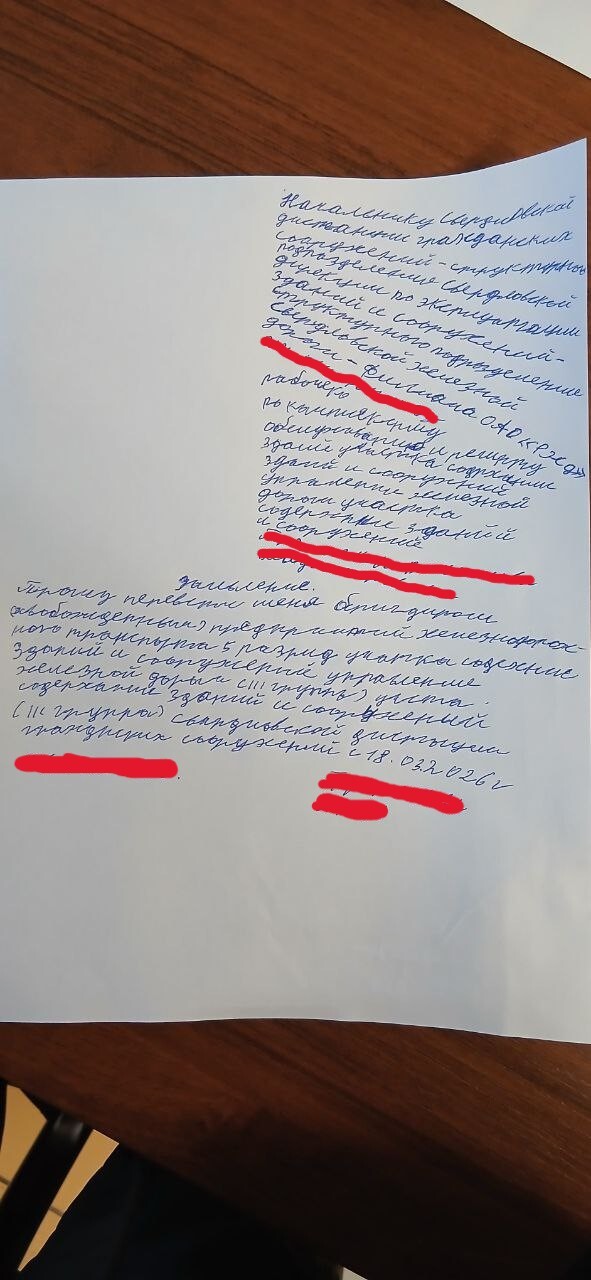 Начальнику Свердловской
дистанции гражданских
сооружений - структурного
подразделение Свердловской
дирекции по эксплуатации
зданий и сооружений -
структурного подразделение
Свердловской железной
дороги - филиала ОАО «РЖД»
рабочего
по комплексному
обслуживанию и ремонту
зданий участка содержании
зданий и сооружений
управлении железной
дороги участка
содержание зданий
и сооружений
заявление.
Прошу перевести меня бригадиром
(освобожденным) предприятий железнодорож-
ного транспорта 5 разряд участка
зданий и сооружений управление
железной дороги (III группы) участа
содержание зданий и сооружений
(III группа) свердловской дистанции
гражданских сооружений с 18.03.2026 г